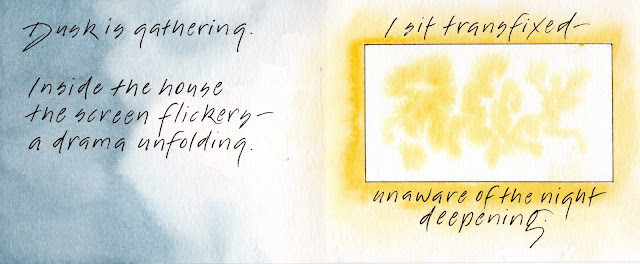 Dusk is gathering.
Inside the house
the screen flickers—
a drama unfolding.
I sit transfixed—
unaware of the night
deepening.